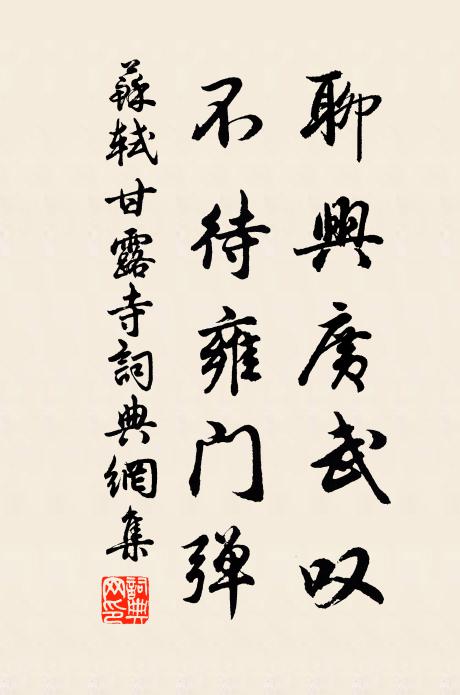 聊興廣武叹
不待雍门弹
蘇軾甘露寺詞典網集
詞典网印